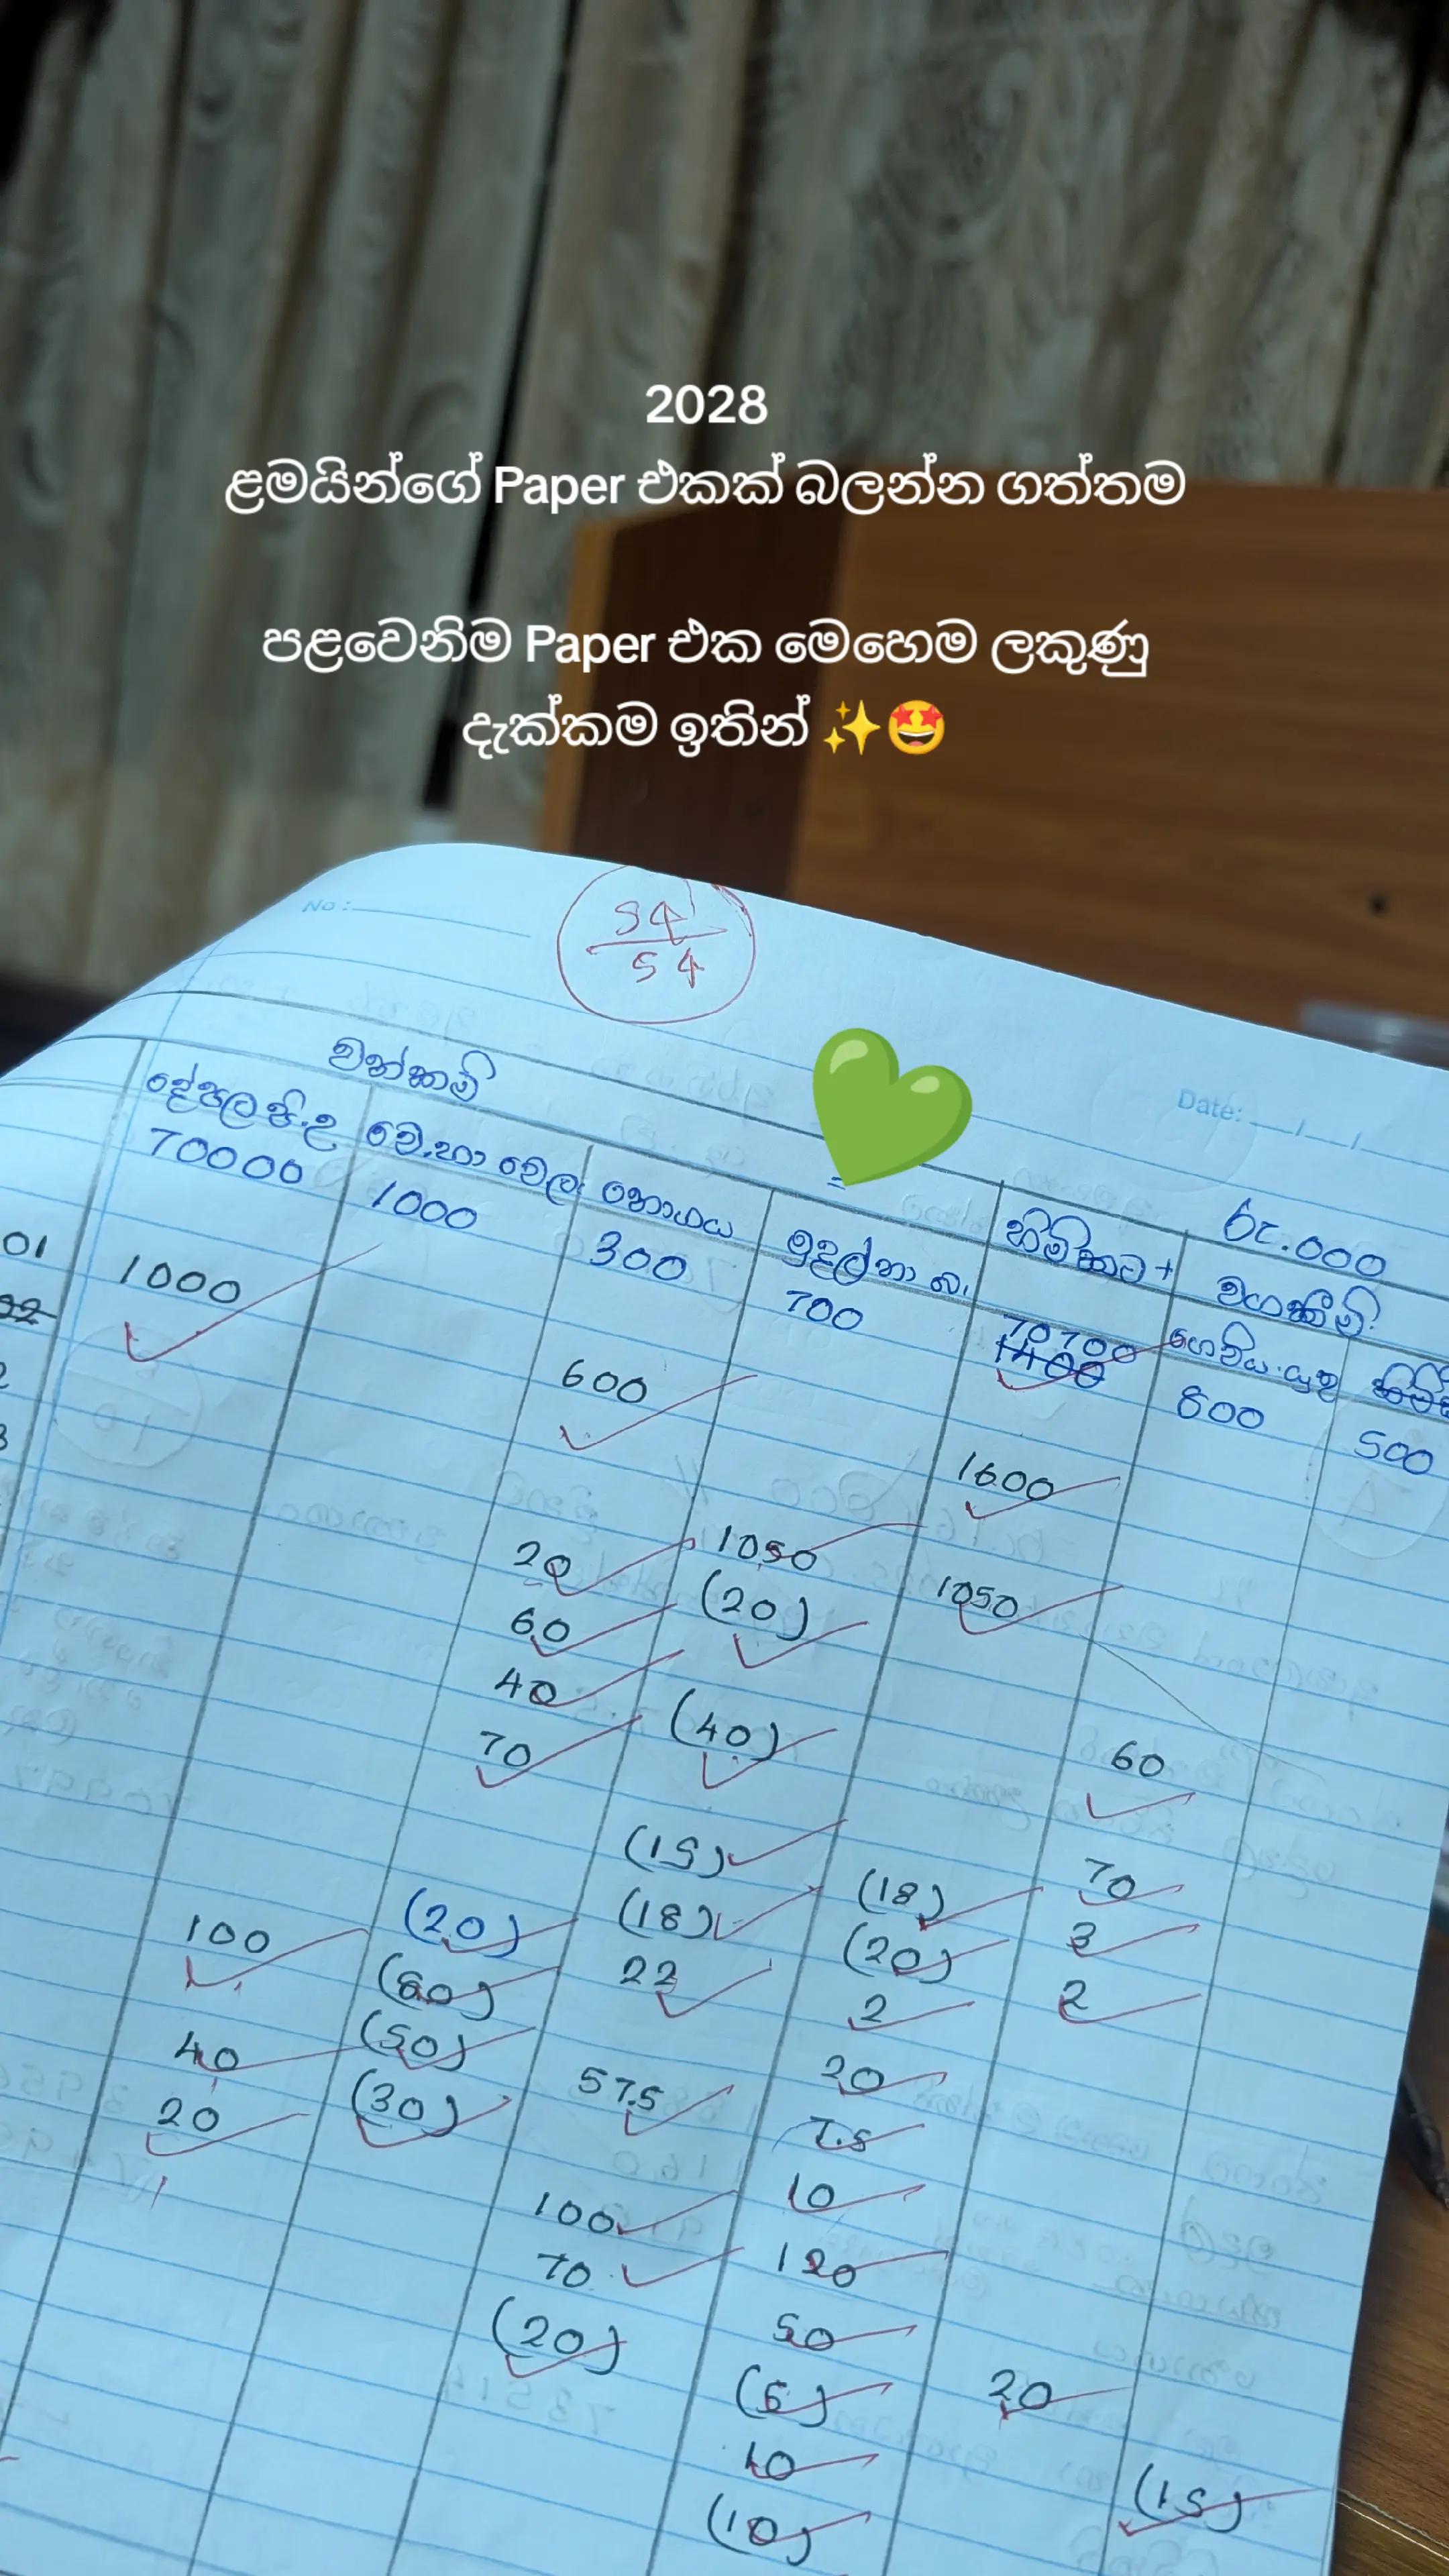 2028
ළමයින්ගේ Paper එකක් බලන්න ගත්තම
පළවෙනිම Paper එක මෙහෙම ලකුණු
දැක්කම ඉතින් ✨🤩
No:
54
54
Date: __/__/
වත්කම්
=
රු.000
දේපල පි.උ වෙ.භා වෙල නොගය ඉදල් නා බ. හිමිකට + වගකීම්
ගෙවිය යුතු
70000 1000 300 700 70700 800 500
1400
01 1000 600 1600
22
2 1050 1050
3 20 (20)
60 60
40 (40)
70 70
(15)
(18) (18) 3
100 (20) 22 (20) 2
(60) 2
40 (50) 57.5 20
20 (30) 7.5
100 10
70 120
(20) 50
(5) 20
10
(10) (15)